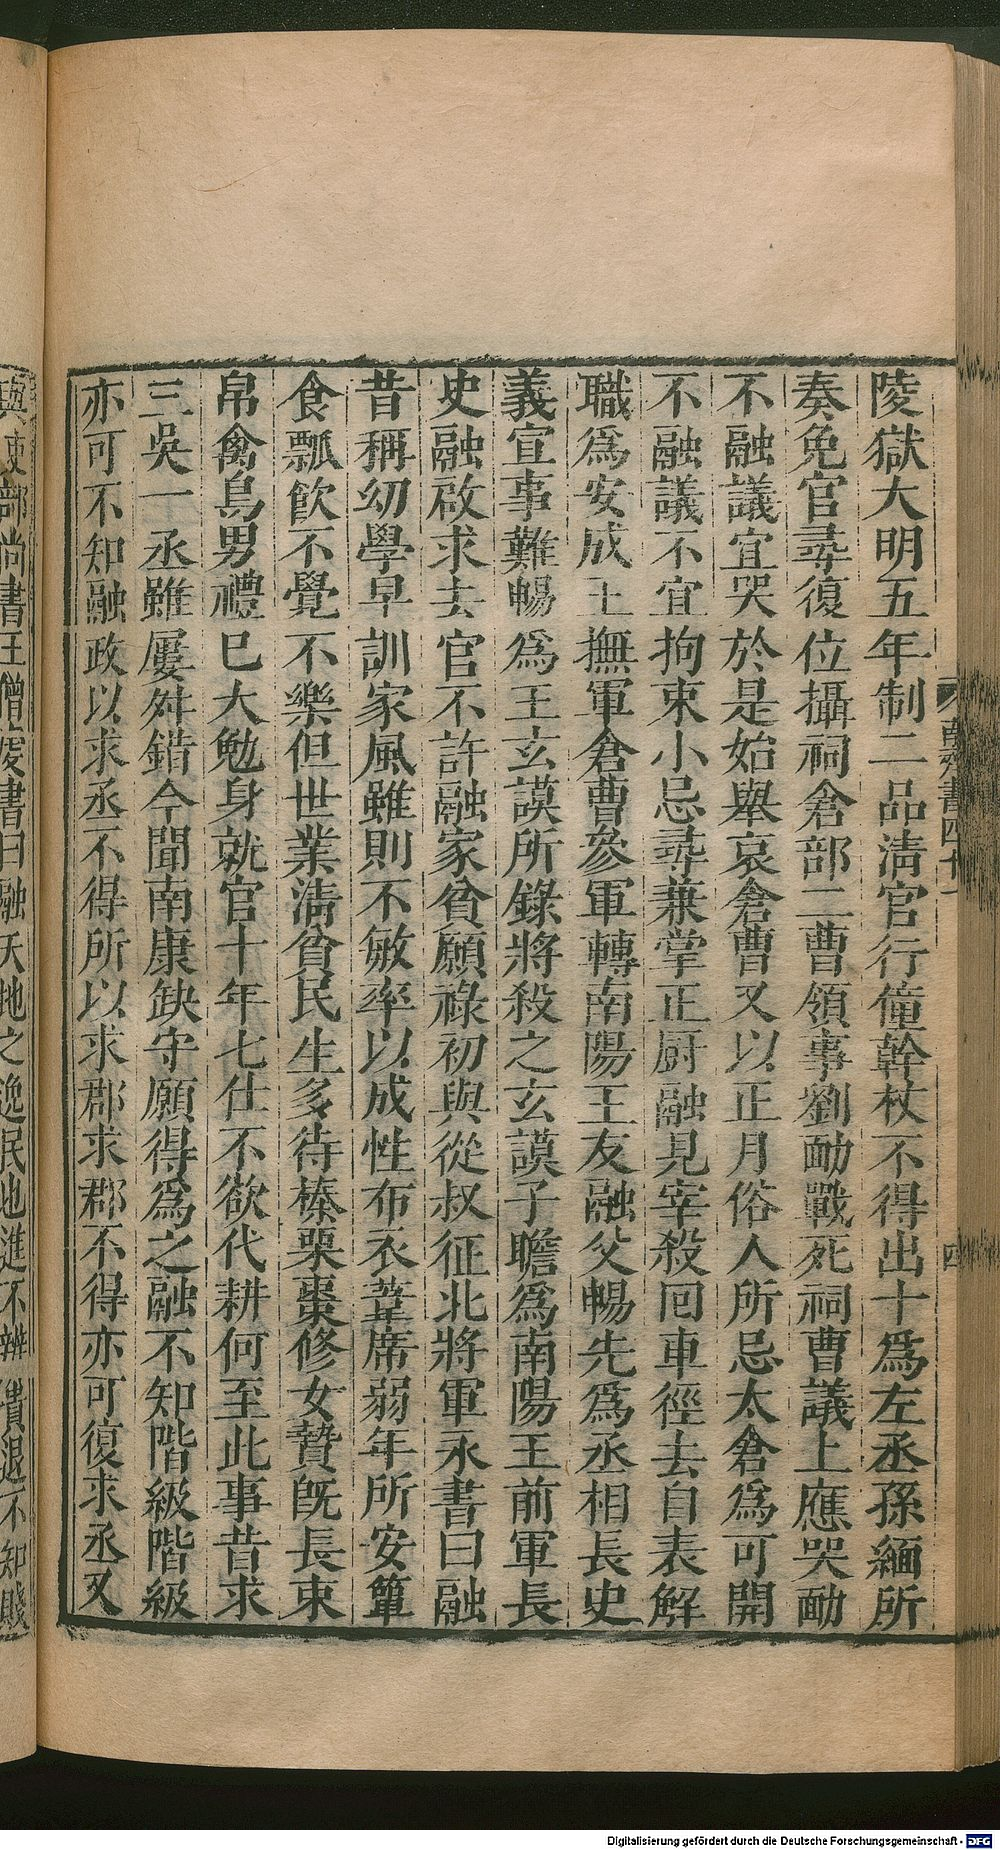 陵獄大明五年制二品淸官行僮幹杖不得出十爲左丞孫緬所
奏免官尋復位攝祠倉部二曹領事劉勔戰死祠曹議上應哭勔
不融議宜哭於是始舉哀倉曹又以正月俗人所忌太倉爲可開
不融議不宜拘束小忌尋兼掌正厨融見宰殺囘車徑去自表解
職爲安成王撫軍倉曹參軍轉南陽王友融父暢先爲丞相長史
義宣事難暢爲王玄謨所錄將殺之玄謨子瞻爲南陽王前軍長
史融啟求去官不許融家貧願祿初與從叔征北將軍永書曰融
昔稱幼學早訓家風雖則不敏率以成性布衣葦席弱年所安簞
食瓢飲不覺不樂但世業淸貧民生多待榛栗棗修女贄旣長束
帛禽鳥男禮已大勉身就官十年七仕不欲代耕何至此事昔求
三吳一丞雖屢舛錯今聞南康缺守願得爲之融不知階級階級
亦可不知融政以求丞不得所以求郡求郡不得亦可復求丞又
與吏部尚書王僧虔書曰融天地之逸民也進不辨貴退不知賤
南齊書四十一
四
Digitalisierung gefördert durch die Deutsche Forschungsgemeinschaft - DFG